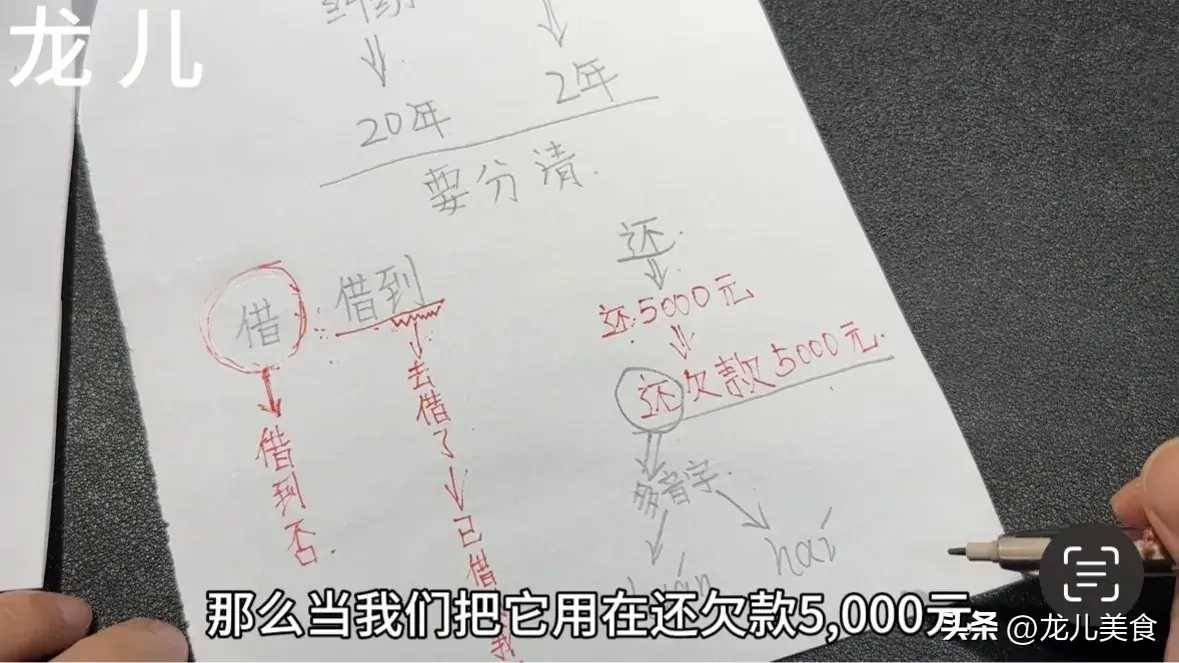 龙儿
纠纷
20年
2年
要分清.
借
借到
还.
还5000元
还欠款5000元.
借到否.
去借了
已借
我
多音字.
huán
hái
那么当我们把它用在还欠款5,000元
头条 @龙儿美食